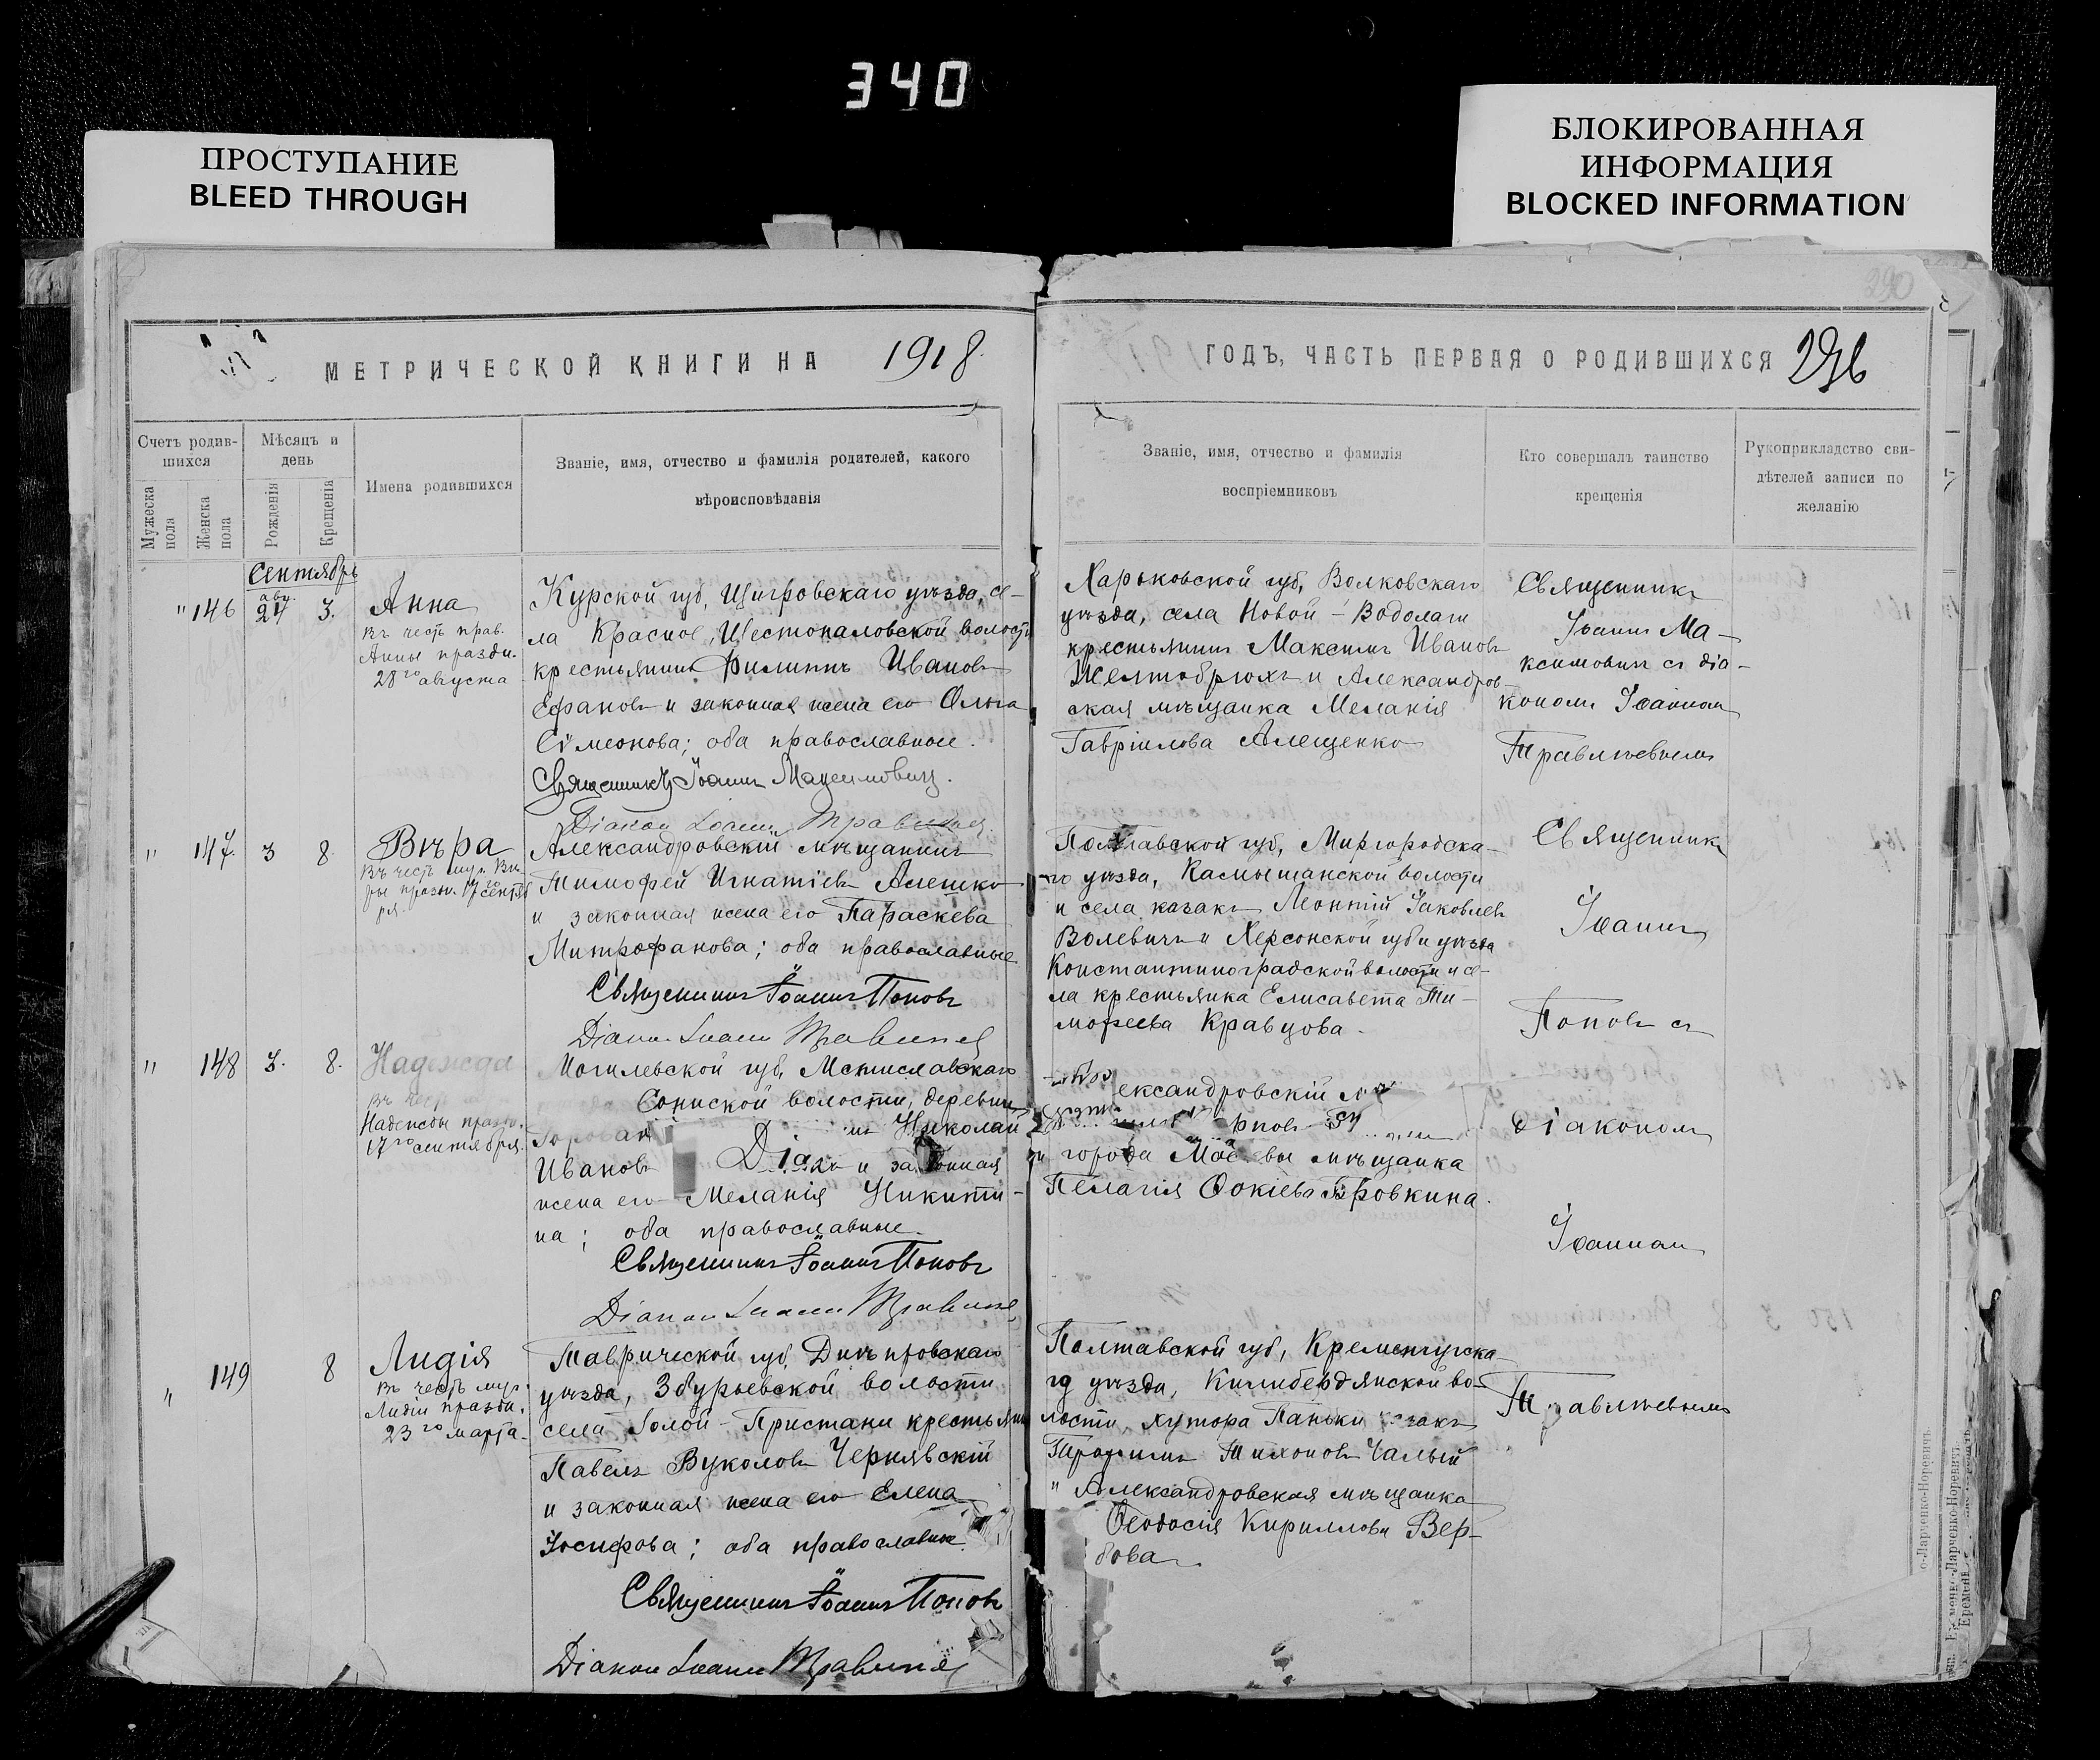 340
ПРОСТУПАНИЕ
BLEED THROUGH
БЛОКИРОВАННАЯ
ИНФОРМАЦИЯ
BLOCKED INFORMATION
290
МЕТРИЧЕСКОЙ КНИГИ НА 1918.
Счетъ родив-
шихся
Мужеска
пола
Женска
пола
Мѣсяцъ и
день
Рожденія
Крещенія
Имена родившихся
Званіе, имя, отчество и фамилія родителей, какого
вѣроисповѣданія
Сентябрь
авг.
" 146 24 3. Анна
Въ честь прав.
Анны праздн.
28го августа
Курской губ, Щигровскаго уѣзда, се-
ла Красное, волости
крестьянинъ Филиппъ Ивановъ
Ефановъ и законная жена его Ольга
Сѵмеонова; оба православные.
Священникъ Іоаннъ Максимовичъ.
Діаконъ Іоаннъ
" 147. 3 8. Вѣра
Въ честь муч. Вѣ-
ры праздн. 17го сентяб
ря.
Александровскій мѣщанинъ
Тимофей Игнатіевъ Алешко
и законная жена его Параскева
Митрофанова; оба православные
Священникъ Іоаннъ Поповъ
Діаконъ Іоаннъ
" 148 3. 8. Надежда
Въ честь
Надежды праздн.
17го сентября.
Могилевской губ, Мстиславскаго
волости, деревни
Николай
Ивановъ и законная
жена его Меланія Никити-
на; оба православные.
Священникъ Іоаннъ Поповъ
Діаконъ Іоаннъ
" 149 8 Лидія
Въ честь муч.
Лидіи праздн.
23го марта.
Таврической губ, Днѣпровскаго
уѣзда, Збурьевской волости
села Голой-Пристани крестьянинъ
Павелъ Вуколовъ Чернявскій
и законная жена его Елена
Іосифова; оба православные.
Священникъ Іоаннъ Поповъ
Діаконъ Іоаннъ
ГОДЪ, ЧАСТЬ ПЕРВАЯ О РОДИВШИХСЯ 296
Званіе, имя, отчество и фамилія
воспріемниковъ
Кто совершалъ таинство
крещенія
Рукоприкладство сви-
дѣтелей записи по
желанію
Харьковской губ, Волковскаго
уѣзда, села Новой-Водолаги
крестьянинъ Максимъ Ивановъ
Желтобрюхъ и Александров-
ская мѣщанка Меланія
Гавріилова Алещенко
Священникъ
Іоаннъ Ма-
ксимовичъ съ діа-
кономъ Іоанномъ
Травлѣевымъ
Полтавской губ, Миргородска-
го уѣзда, Камышанской волости
и села казакъ Леонтій Іаковлевъ
Волевичъ и Херсонской губ и уѣзда
Константиноградской волости и се-
ла крестьянка Елисавета Ти-
мофеева Кравцова.
Священникъ
Іоаннъ
Поповъ съ
ександровскій
и города мѣщанка
Пелагія Фокіева Бровкина.
Діакономъ
Іоанномъ
Полтавской губ, Кременчугска-
го уѣзда, Килибердянской во-
лости, хутора Паньки
Трофимъ Тихоновъ Чалый
и Александровская мѣщанка
Феодосія Кириллова Вер-
бова.
Травлѣевымъ